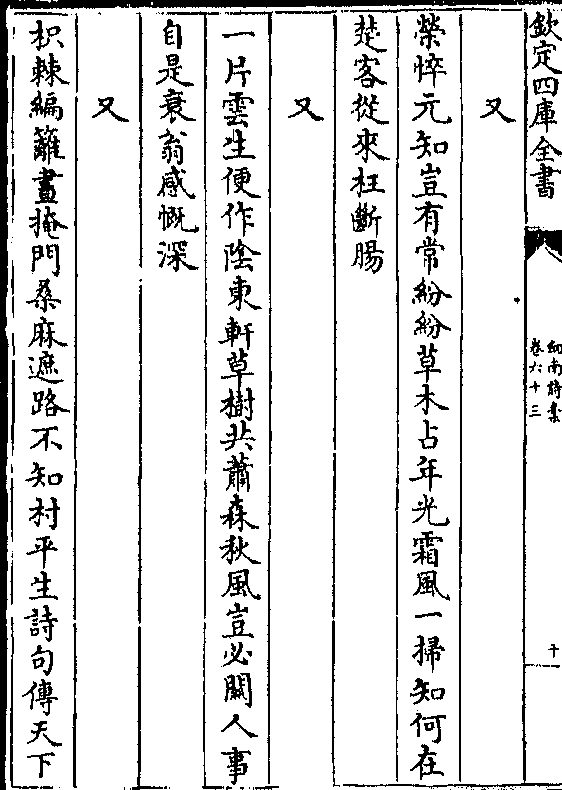 欽定四庫全書
劍南詩集
卷六十三
十
又
榮悴元知豈有常紛紛草木占年光霜風一掃知何在
楚客從來枉斷腸
又
一片雲生便作陰東軒草樹共蕭森秋風豈必關人事
自是衰翁感慨深
又
枳棘編籬晝掩門桑麻遮路不知村平生詩句傳天下